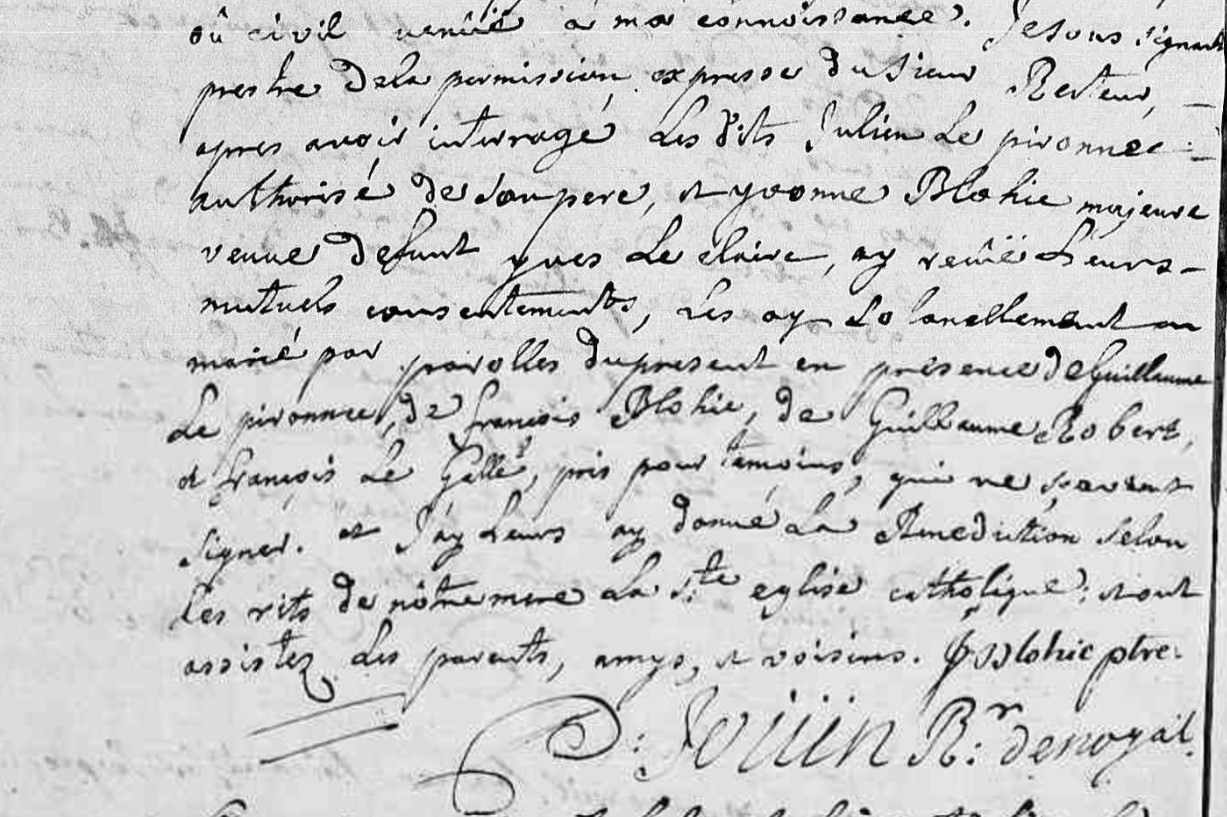 où civil venüë à ma connoissance. Je sous signant
prestre de la permission expresse du Sieur Recteur,
apres avoir interrogé Les dits Julien Le pironnec
authorisé de son pere, et yvonne Blohic majeure
veuve defunt yves Le claire, ay reçüë Leurs
mutuels consentements, Les ay Solanellement en
marié par parolles du present en presence de Guillaume
Le pironnec, de françois Blohic, de Guillaume Robert,
et françois Le Gallé, pris pour temoins, qui ne sçavent
signer. et J'ay Leurs ay donné La Benediction selon
Les rits de nôtre mere La Ste eglise catholique; et ont
assistez Les parents, amys, et voisins. Blohic ptre.
Joüin Rr: de noyal.